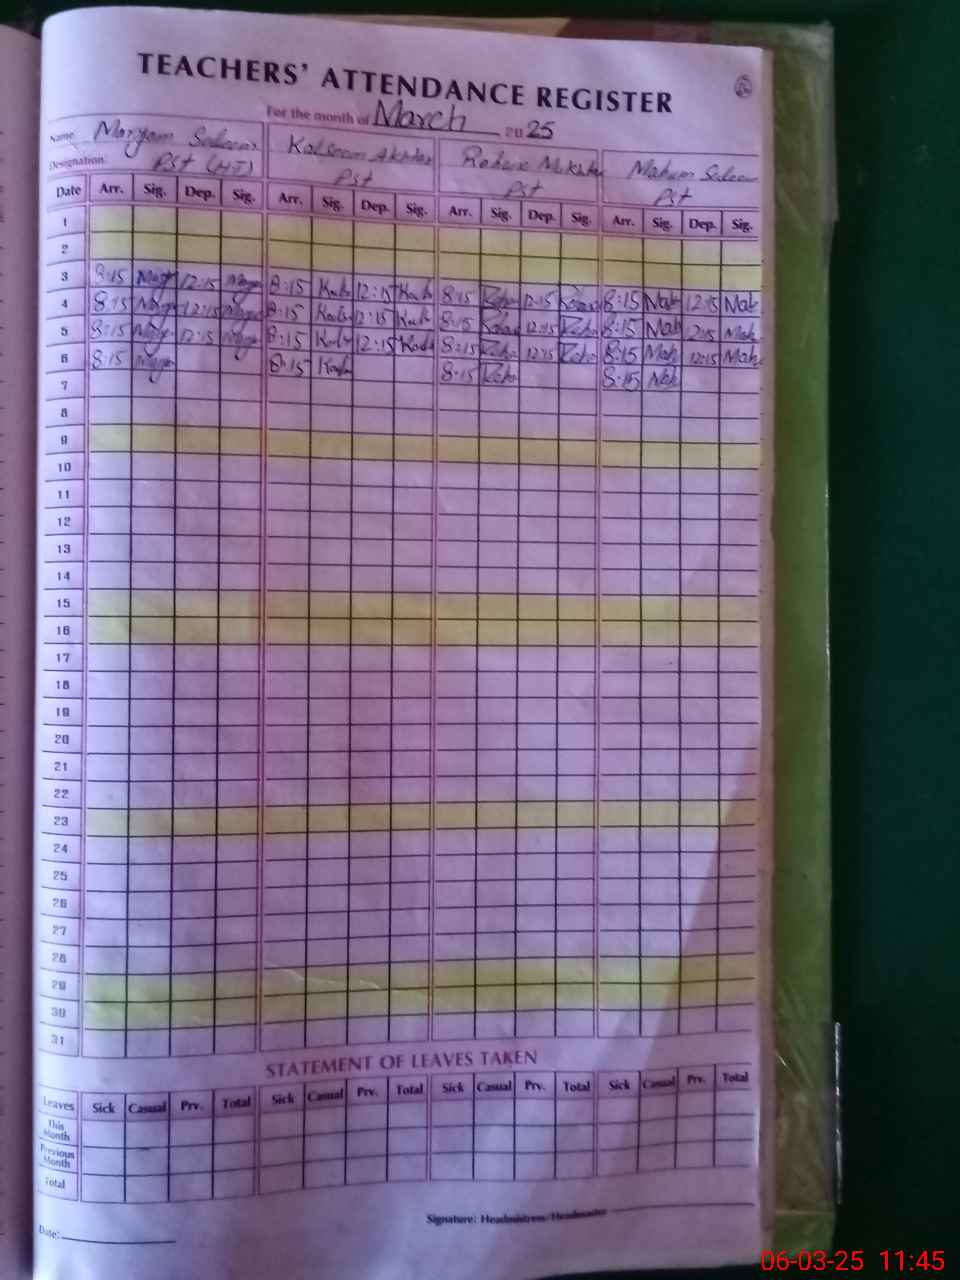 TEACHERS' ATTENDANCE REGISTER
For the month of March 2025
Name: Maryam Saleem Kalsoom Akhtar Mahum Saleem
Designation: PST (HT) PST PST PST
Date Arr. Sig. Dep. Sig. Arr. Sig. Dep. Sig. Arr. Sig. Dep. Sig. Arr. Sig. Dep. Sig.
1
2
3 8:15 12:15 8:15 12:15 8:15 12:15 8:15 12:15
4 8:15 12:15 8:15 12:15 8:15 12:15 8:15 12:15
5 8:15 12:15 8:15 12:15 8:15 12:15 8:15 12:15
6 8:15 8:15 8:15 8:15
7
8
9
10
11
12
13
14
15
16
17
18
19
20
21
22
23
24
25
26
27
28
29
30
31
STATEMENT OF LEAVES TAKEN
Leaves Sick Casual Prv. Total Sick Casual Prv. Total Sick Casual Prv. Total Sick Casual Prv. Total
This Month
Previous Month
Total
Signature: Headmistress/Headmaster
Date:
06-03-25 11:45